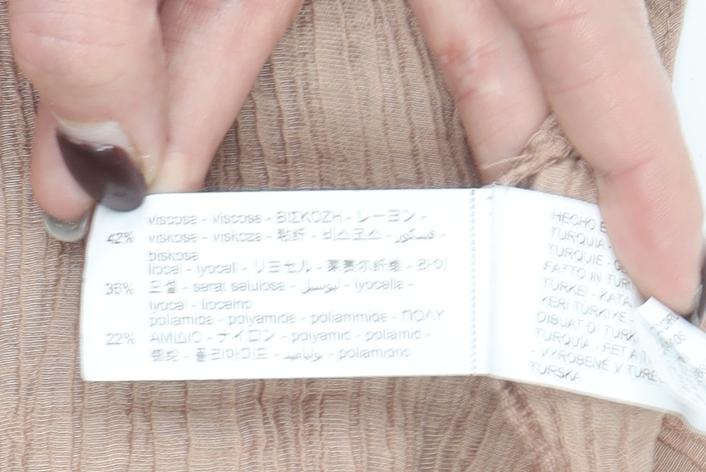 viscosa - viscose - ΒΙΣΚΟΖΗ - レーヨン -
42% viskose - viskoza - 粘纤 - 비스코스 - فسكوز -
biskosa
liocel - lyocell - リヨセル - 莱赛尔纤维 - 라이
36% 오셀 - serat selulosa - ليوسيل - lyocella -
lyocal - liocelno
poliamida - polyamide - poliammide - ΠΟΛΥ
22% ΑΜΙΔΙΟ - ナイロン - polyamid - poliamid -
锦纶 - 폴리아미드 - بولياميد - poliamidno
HECHO E
TURQUIA -
TURQUIE -
FATTO IN TUR
TURKEI - KATA
KERI TÜRKIYE -
DIBUAT DI TURK
TURQUIA -
- VYROBENE V TURE
TURSKA